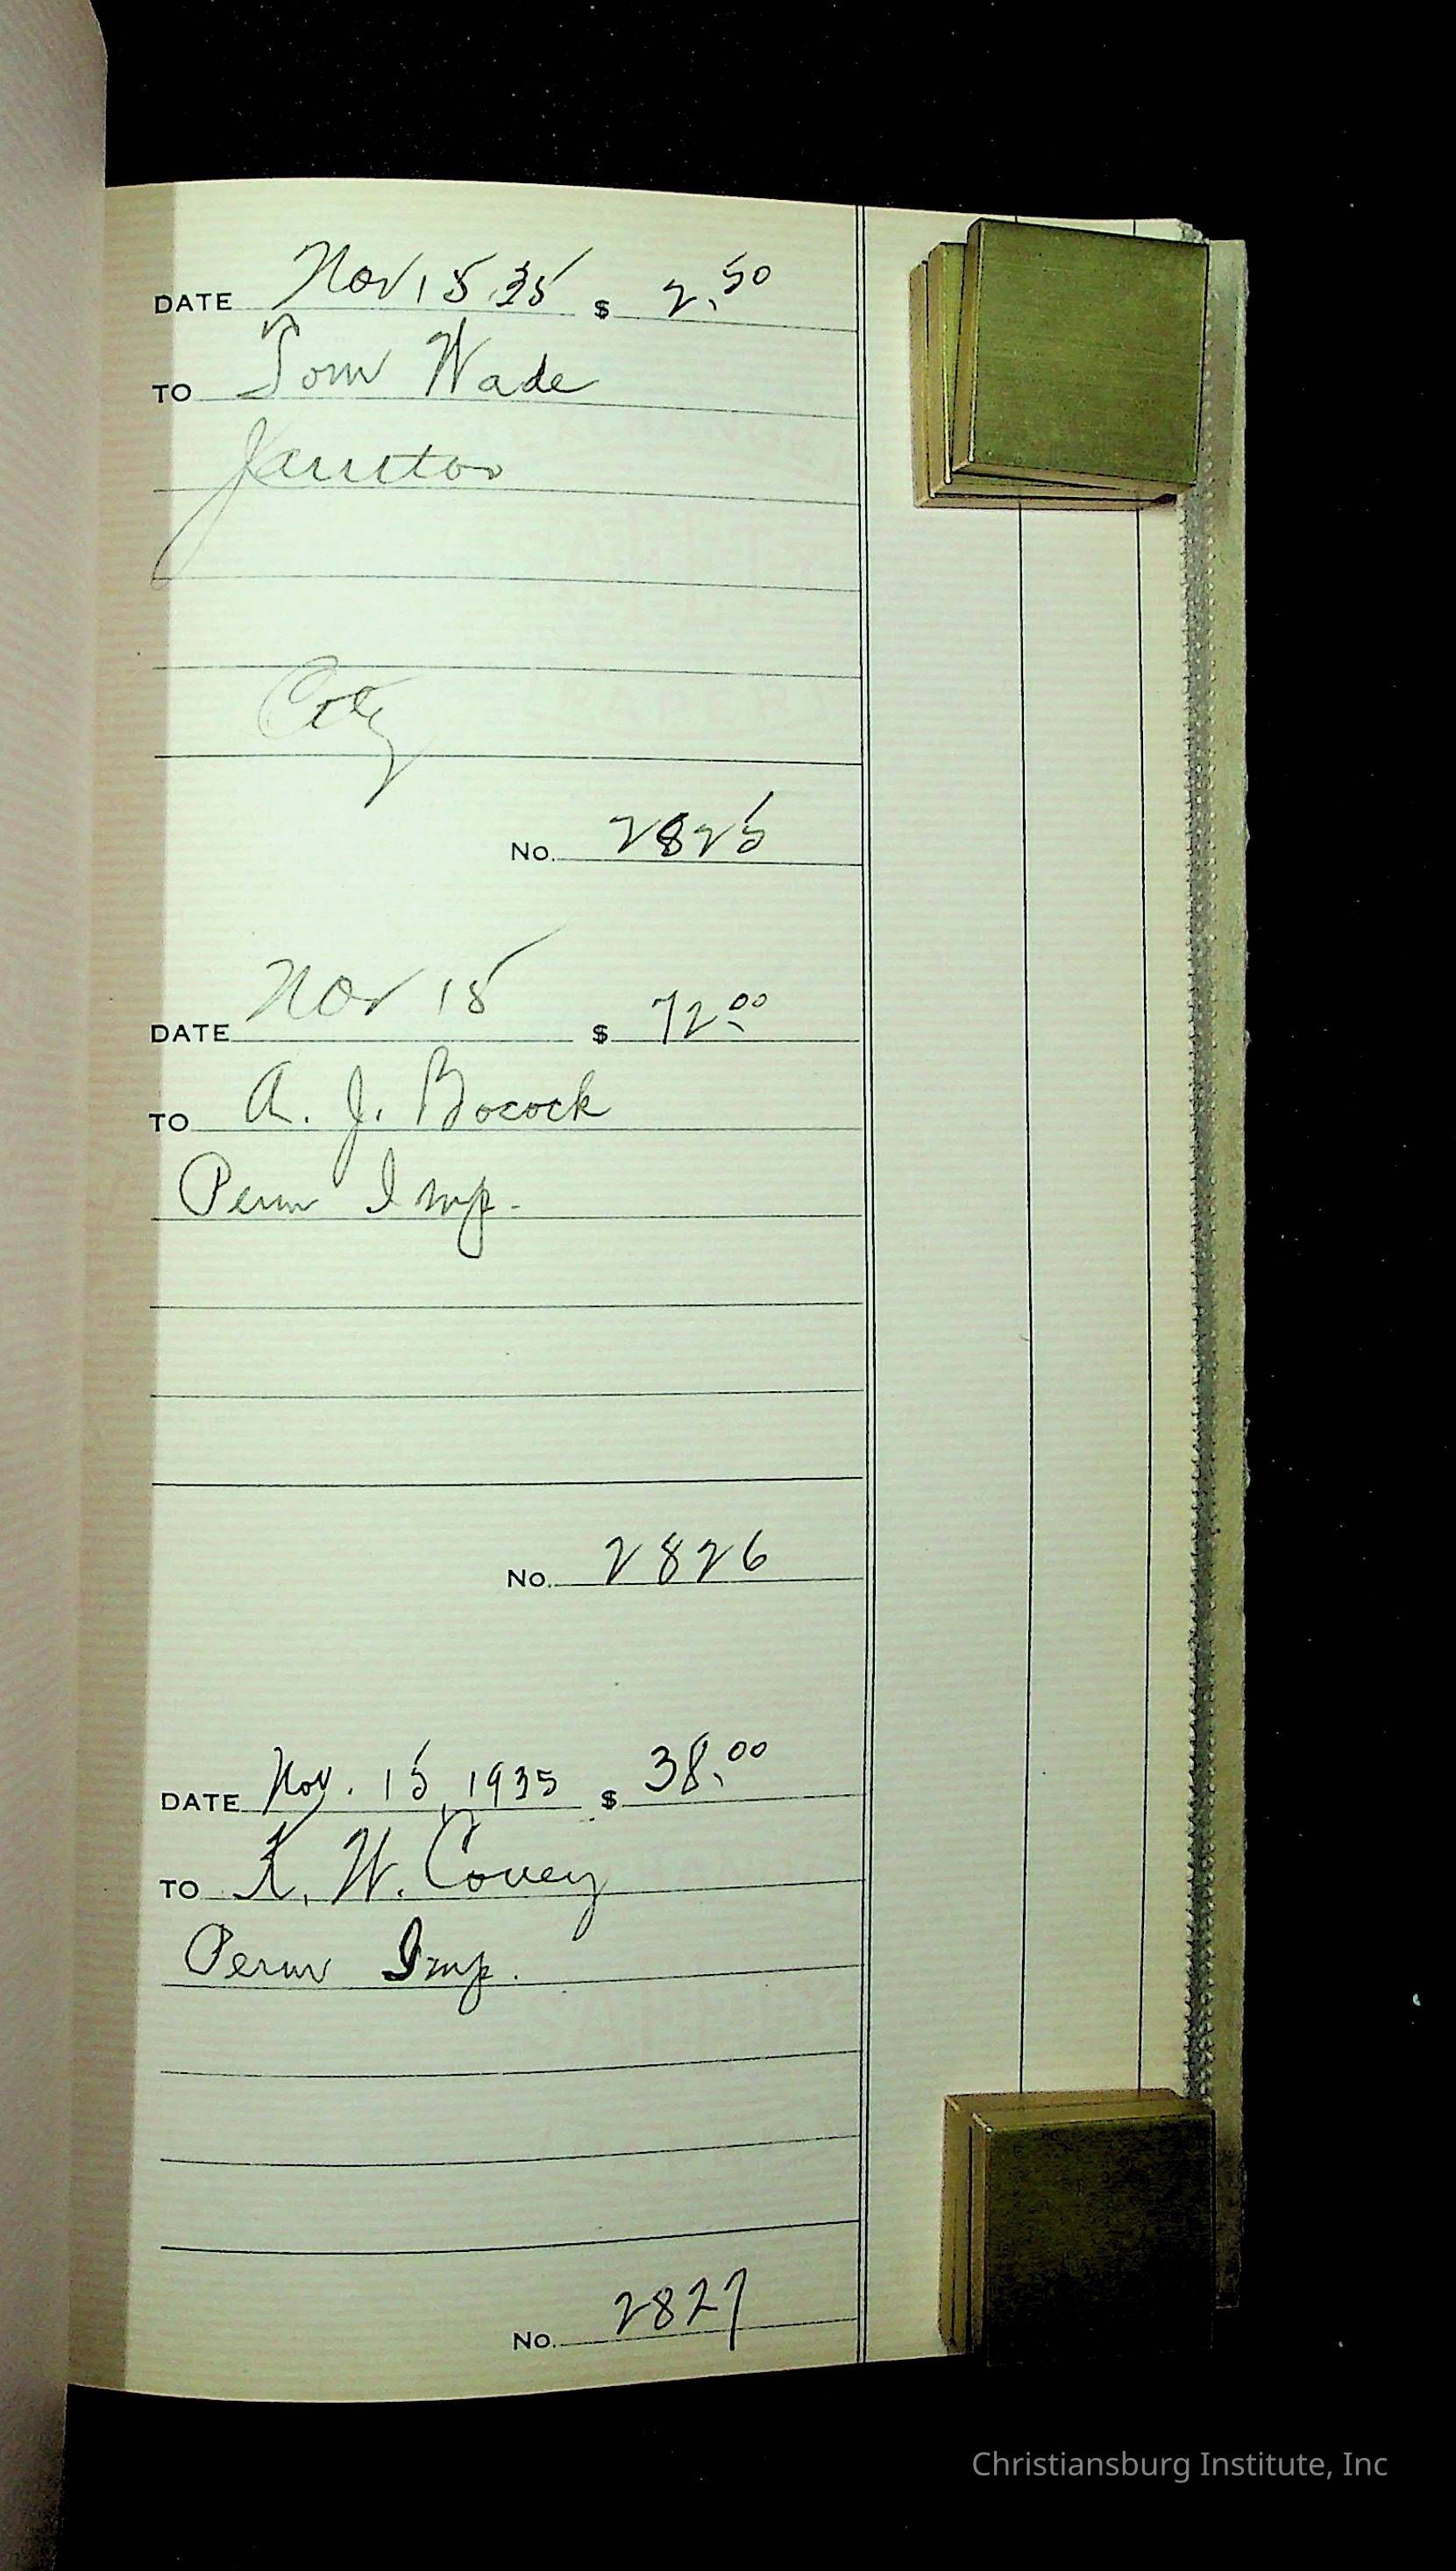 DATE Nov 15 35 $ 2.50
TO Tom Wade
Janitor
City
No. 2825
DATE Nov 15 $ 72.00
TO A. J. Bocock
Perm Imp.
No. 2826
DATE Nov. 15, 1935 $ 38.00
TO K. W. Covey
Perm Imp.
No. 2827
Christiansburg Institute, Inc